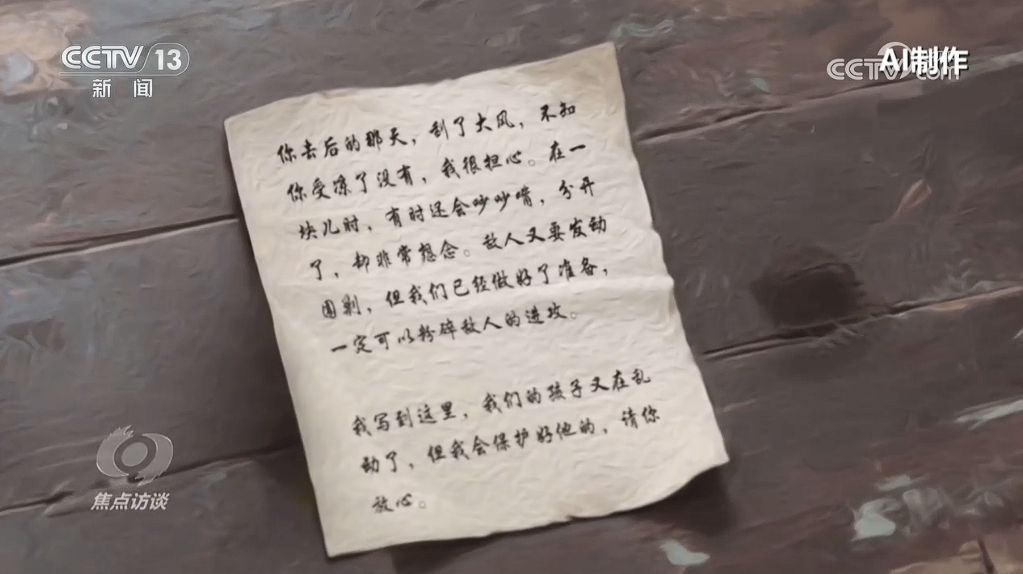 CCTV 13
新闻
CCTV.com
AI制作
你去后的那天，刮了大风，不知
你受冻了没有，我很担心。在一
块儿时，有时还会吵吵嘴，分开
了，却非常想念。敌人又要发动
围剿，但我们已经做好了准备，
一定可以粉碎敌人的进攻。
我写到这里，我们的孩子又在乱
动了，但我会保护好他的，请你
放心。
焦点访谈